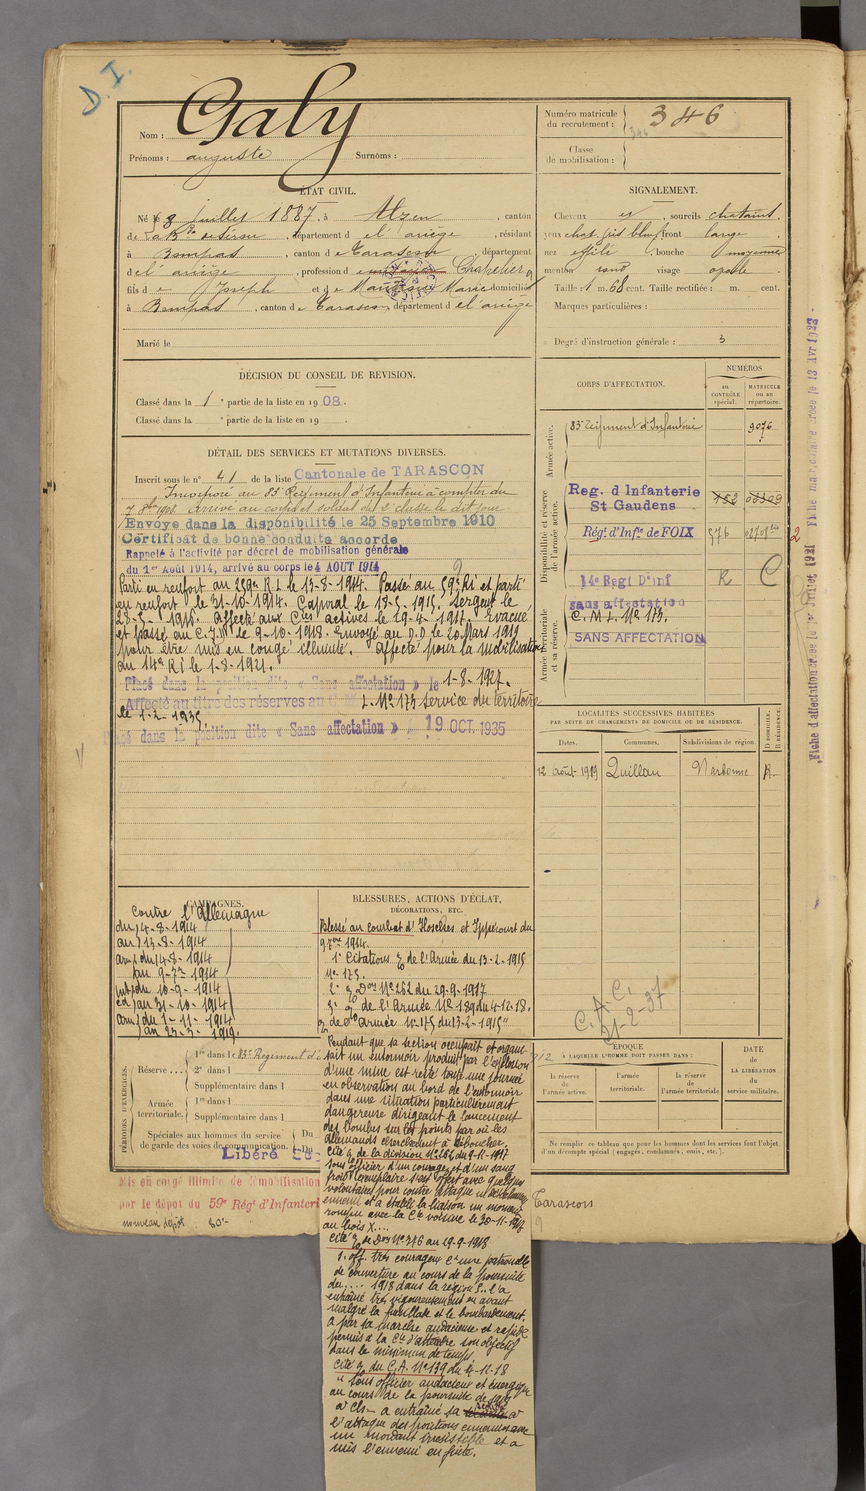 D.I.
Nom : Galy
Prénoms : auguste Surnoms :
Numéro matricule du recrutement : 346
Classe de mobilisation :
ÉTAT CIVIL.
Né le 3 juillet 1887, à Alzen, canton
de La Bde de Sérou, département de l'ariège, résidant
à Bompas, canton de Tarascon, département
de l'ariège, profession de Chapelier
fils de Joseph et de Marie domicilié
à Bompas, canton de Tarascon, département de l'ariège
Marié le
SIGNALEMENT.
Cheveux et , sourcils chatains
yeux chat. gris bleu, front large
nez effilé , bouche moyenne
menton rond visage ovale
Taille : 1 m. 68 cent. Taille rectifiée : m. cent.
Marques particulières :
Degré d'instruction générale : 3
DÉCISION DU CONSEIL DE REVISION.
Classé dans la 1e partie de la liste en 1908.
Classé dans la e partie de la liste en 19
CORPS D'AFFECTATION.
NUMÉROS
au CONTRÔLE spécial.
MATRICULE ou au répertoire.
Armée active.
83e Régiment d'Infanterie 9076
Disponibilité et réserve de l'armée active.
Reg. d Infanterie
St Gaudens 152
Régt d'Infie de FOIX 576
14e Regt D'inf R C
Armée territoriale et sa réserve.
sans affectation
C.M.L. No 173.
SANS AFFECTATION
DÉTAIL DES SERVICES ET MUTATIONS DIVERSES.
Inscrit sous le n° 41 de la liste Cantonale de TARASCON
Incorporé au 83e Régiment d'Infanterie à compter du
7 8bre 1908. Arrivé au corps et soldat de 2e classe le dit jour
Envoyé dans la disponibilité le 25 Septembre 1910
Certificat de bonne conduite accordé
Rappelé à l'activité par décret de mobilisation générale
du 1er Août 1914, arrivé au corps le 4 AOUT 1914
Parti en renfort au 259e R.I. le 13-8-1914. Passé au 59e RI et parti
en renfort le 31-10-1914. Caporal le 18-5-1915. Sergent le
1916. Affecté aux Cies actives le 19-4-1917. Evacué
et passé au le 9-10-1918. Envoyé au D.D le 20 Mars 1919
pour être mis en congé illimité. Affecté pour la mobilisation
au 14e RI le 1-8-1921.
Placé dans la position dite « Sans affectation » le 1-8-1927.
Affecté au titre des réserves au L. No 173 service du territoire
le 1-2-1935.
Placé dans la position dite « Sans affectation » 19 OCT. 1935
LOCALITÉS SUCCESSIVES HABITÉES
PAR SUITE DE CHANGEMENTS DE DOMICILE OU DE RÉSIDENCE.
Dates. Communes. Subdivisions de région. D DOMICILE. R RÉSIDENCE.
12 août 1919 Quillan Narbonne R
C.A.C.
21-2-37
CAMPAGNES.
Contre l'Allemagne
du 4-8-1914
au 13-8-1914
du 14-8-1914
au 9-7re 1914
du 10-9-1914
au 31-10-1914
du 1-11-1914
1919.
BLESSURES, ACTIONS D'ÉCLAT,
DÉCORATIONS, ETC.
Blessé au combat d' et Ippécourt du
9 7bre 1914.
1e Citations de l'Armée du 13-2-1915
No 175.
2e Don No 262 du 29-9-1917
3e de l'Armée No 139 du 4-12-18.
de l'Armée No 175 du 13-2-1915"
Pendant que sa section occupait et organi-
sait un entonnoir produit par l'explosion
d'une mine est resté toute une journée
en observation au bord de l'entonnoir
dans une situation particulièrement
dangereuse dirigeant le lancement
des bombes sur les points par où les
allemands cherchaient à déboucher.
Cité de la division No 262 du 9-11-1917
sous officier d'un courage et d'un sang
froid exemplaire s'est offert avec quelques
volontaires pour contre attaque un
ennemi et a établi la liaison un moment
rompue avec la Cie voisine le 30-11-1917
au bois X....
Cité de Don No 376 au 29-9-1918
S. off. très courageux d'une patrouille
de couverture au cours de la poursuite
du .... 1918 dans la région S.. l'a
entraîné très vigoureusement en avant
malgré la fusillade et le bombardement.
A par sa marche audacieuse et rapide
permis à la Cie d'atteindre son objectif
dans le minimum de temps.
Cité du C.A. No 139 du 4-11-18
" Sous officier audacieux et énergique
au cours de la poursuite de 1918
a entraîné sa section à
l'attaque des positions ennemies avec
un mordant irresistible et a
mis l'ennemi en fuite.
PÉRIODES D'EXERCICES.
Réserve....
1re dans le 83e Regiment d'
2e dans l
Supplémentaire dans l
Armée territoriale.
1re dans l
Supplémentaire dans l
Spéciales aux hommes du service
de garde des voies de communication.
Du
Libéré
Mis en congé illimité de démobilisation
par le dépôt du 59e Régt d'Infanteri
nouveau dépôt
Tarascon
ÉPOQUE
À LAQUELLE L'HOMME DOIT PASSER DANS :
la réserve de l'armée active.
l'armée territoriale.
la réserve de l'armée territoriale
DATE DE LA LIBÉRATION du service militaire.
Ne remplir ce tableau que pour les hommes dont les services font l'objet
d'un décompte spécial (engagés, condamnés, omis, etc.).